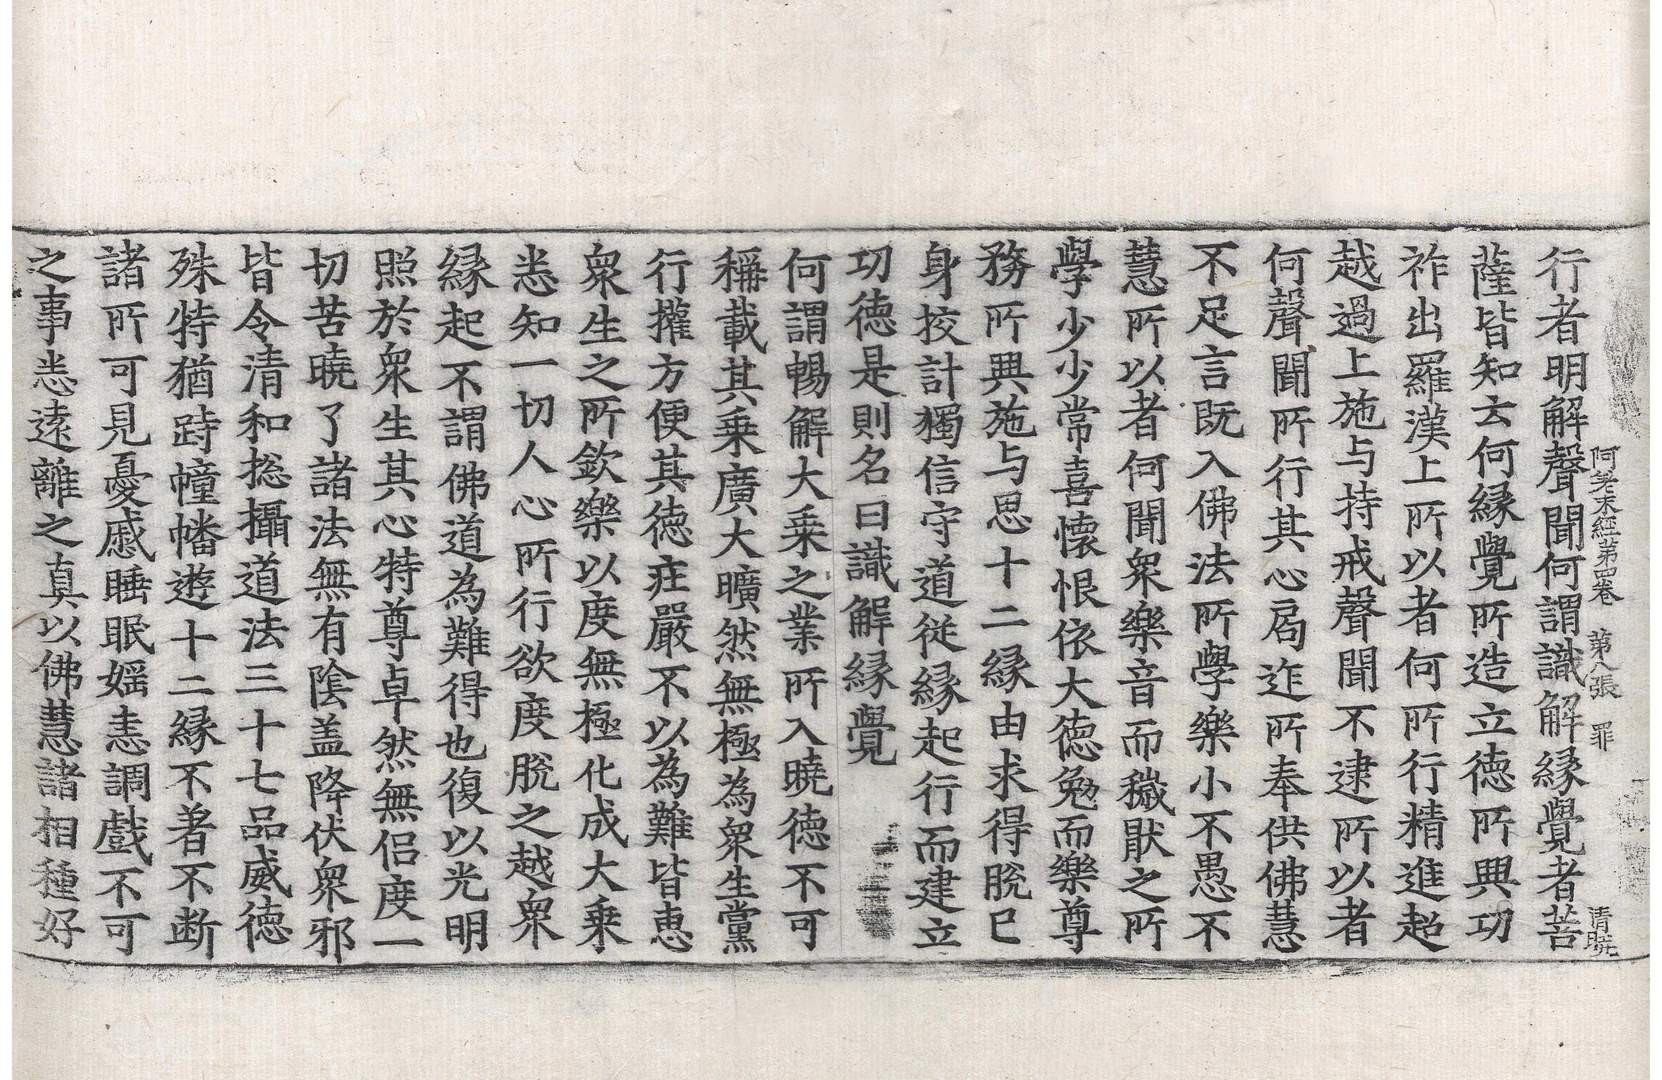 阿差末經第四卷　第八張　罪　清晓
行者明解聲聞何謂識解縁覺者菩
薩皆知云何縁覺所造立德所興功
祚出羅漢上所以者何所行精進超
越過上施与持戒聲聞不逮所以者
何聲聞所行其心局迮所奉供佛慧
不足言既入佛法所學樂小不愚不
慧所以者何聞衆樂樂音而穢猒之所
學少少常喜懷恨依大德勉而樂尊
務所興施与思十二縁由求得脫已
身挍計獨信守道從縁起行而建立
功德是則名曰識解縁覺
何謂暢解大乗之業所入曉德不可
稱載其乗廣大曠然無極為衆生黨
行攉方便其德莊嚴不以為難皆惠
衆生之所欽樂以度無極化成大乗
悉知一切人心所行欲度脫之越衆
縁起不謂佛道為難得也復以光明
照於衆生其心特尊卓然無侣度一
切苦曉了諸法無有陰盖降伏衆邪
皆令清和捴攝道法三十七品威德
殊特猶跱幢幡遊十二縁不著不断
諸所可見憂慼睡眠婬恚調戲不可
之事悉遠離之真以佛慧諸相種好